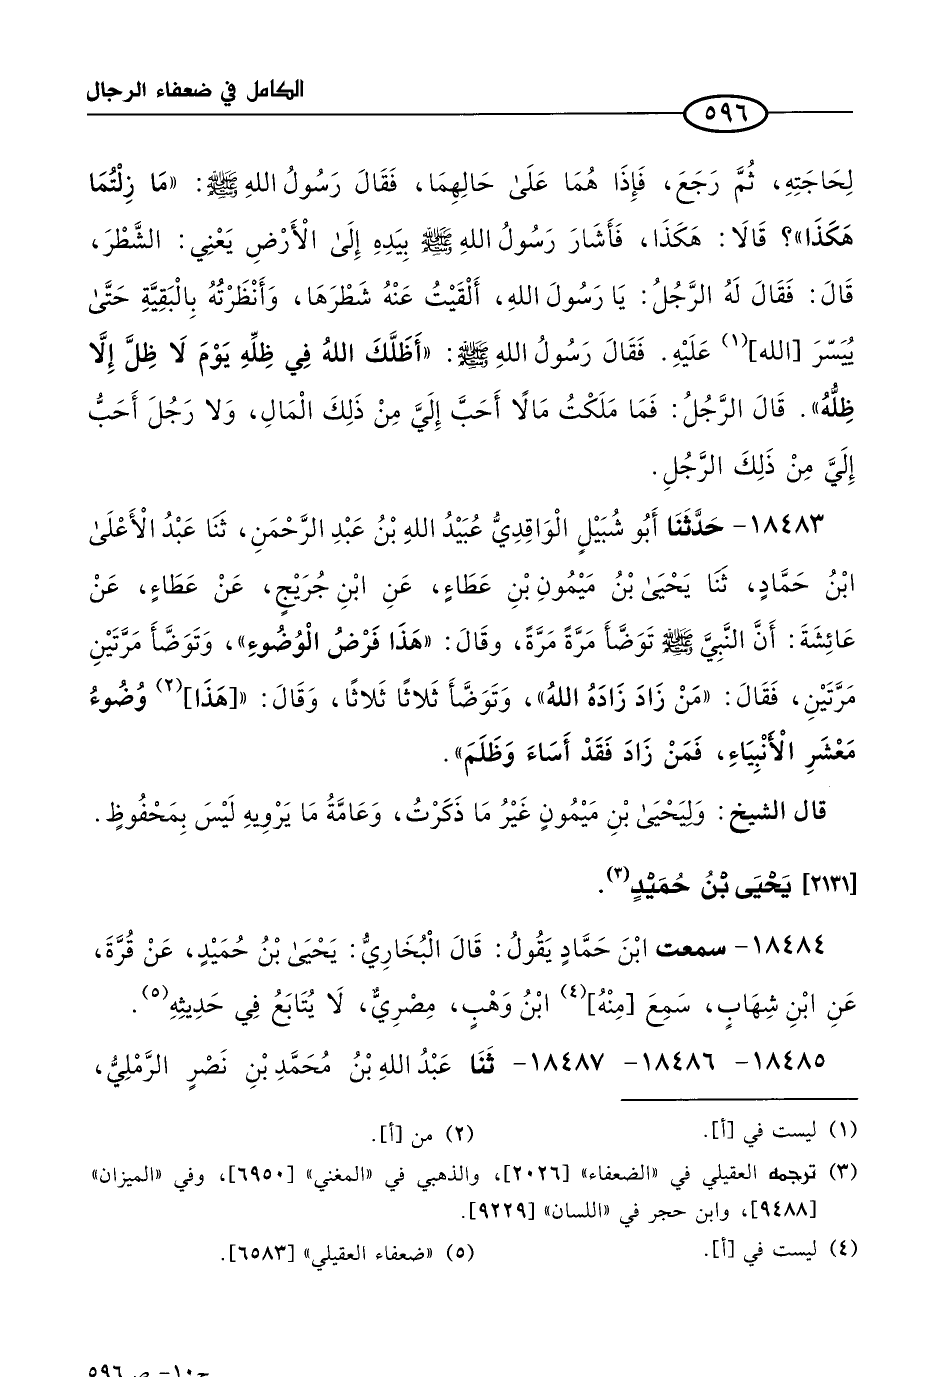 الكامل في ضعفاء الرجال
٥٩٦
لِحَاجَتِهِ، ثُمَّ رَجَعَ، فَإِذَا هُمَا عَلَىٰ حَالِهِمَا، فَقَالَ رَسُولُ اللهِ ﷺ: «مَا زِلْتُمَا
هَكَذَا»؟ قَالَا: هَكَذَا، فَأَشَارَ رَسُولُ اللهِ ﷺ بِيَدِهِ إِلَىٰ الْأَرْضِ يَعْنِي: الشَّطْرَ،
قَالَ: فَقَالَ لَهُ الرَّجُلُ: يَا رَسُولَ اللهِ، أَلْقَيْتُ عَنْهُ شَطْرَهَا، وَأَنْظَرْتُهُ بِالْبَقِيَّةِ حَتَّىٰ
يُيَسِّرَ [الله](١) عَلَيْهِ. فَقَالَ رَسُولُ اللهِ ﷺ: «أَظَلَّكَ اللهُ فِي ظِلِّهِ يَوْمَ لَا ظِلَّ إِلَّا
ظِلُّهُ». قَالَ الرَّجُلُ: فَمَا مَلَكْتُ مَالًا أَحَبَّ إِلَيَّ مِنْ ذَلِكَ الْمَالِ، وَلا رَجُلَ أَحَبُّ
إِلَيَّ مِنْ ذَلِكَ الرَّجُلِ.
١٨٤٨٣- حَدَّثَنَا أَبُو شُبَيْلٍ الْوَاقِدِيُّ عُبَيْدُ اللهِ بْنُ عَبْدِ الرَّحْمَنِ، ثَنَا عَبْدُ الْأَعْلَىٰ
ابْنُ حَمَّادٍ، ثَنَا يَحْيَىٰ بْنُ مَيْمُونِ بْنِ عَطَاءٍ، عَنِ ابْنِ جُرَيْجٍ، عَنْ عَطَاءٍ، عَنْ
عَائِشَةَ: أَنَّ النَّبِيَّ ﷺ تَوَضَّأَ مَرَّةً مَرَّةً، وقَالَ: «هَذَا فَرْضُ الْوُضُوءِ»، وَتَوَضَّأَ مَرَّتَيْنِ
مَرَّتَيْنِ، فَقَالَ: «مَنْ زَادَ زَادَهُ اللهُ»، وَتَوَضَّأَ ثَلاثًا ثَلاثًا، وَقَالَ: «[هَذَا](٢) وُضُوءُ
مَعْشَرِ الْأَنْبِيَاءِ، فَمَنْ زَادَ فَقَدْ أَسَاءَ وَظَلَمَ».
قال الشيخ: وَلِيَحْيَىٰ بْنِ مَيْمُونٍ غَيْرُ مَا ذَكَرْتُ، وَعَامَّةُ مَا يَرْوِيهِ لَيْسَ بِمَحْفُوظٍ.
[٢١٣١] يَحْيَى بْنُ حُمَيْدٍ(٣).
١٨٤٨٤- سمعت ابْنَ حَمَّادٍ يَقُولُ: قَالَ الْبُخَارِيُّ: يَحْيَىٰ بْنُ حُمَيْدٍ، عَنْ قُرَّةَ،
عَنِ ابْنِ شِهَابٍ، سَمِعَ [مِنْهُ](٤) ابْنُ وَهْبٍ، مِصْرِيٌّ، لَا يُتَابَعُ فِي حَدِيثِهِ(٥).
١٨٤٨٥- ١٨٤٨٦- ١٨٤٨٧- ثَنَا عَبْدُ اللهِ بْنُ مُحَمَّدِ بْنِ نَصْرٍ الرَّمْلِيُّ،
(١) ليست في [أ]. (٢) من [أ].
(٣) ترجمه العقيلي في «الضعفاء» [٢٠٢٦]، والذهبي في «المغني» [٦٩٥٠]، وفي «الميزان»
[٩٤٨٨]، وابن حجر في «اللسان» [٩٢٢٩].
(٤) ليست في [أ]. (٥) «ضعفاء العقيلي» [٦٥٨٣].
ج١٠- ص٥٩٦